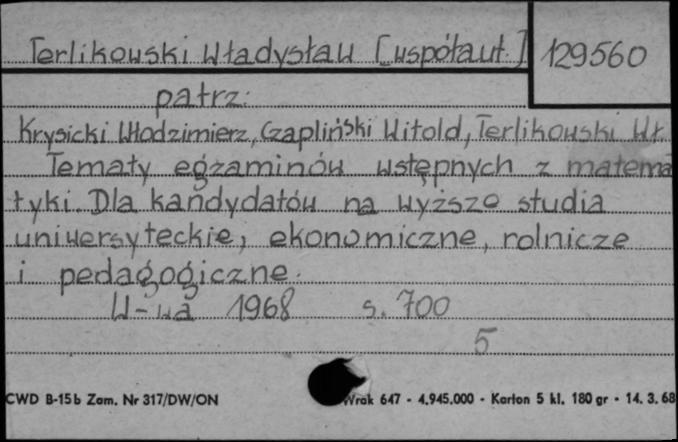 Terlikowski Władysław [współaut.] 129560
patrz:
Krysicki Włodzimierz, Czapliński Witold, Terlikowski Wł.
Tematy egzaminów wstępnych z matema
tyki. Dla kandydatów na wyższe studia
uniwersyteckie, ekonomiczne, rolnicze
i pedagogiczne.
W-wa 1968 s. 700
5
CWD B-15b Zam. Nr 317/DW/ON Wrak 647 - 4.945.000 - Karton 5 kl. 180 gr - 14. 3. 68